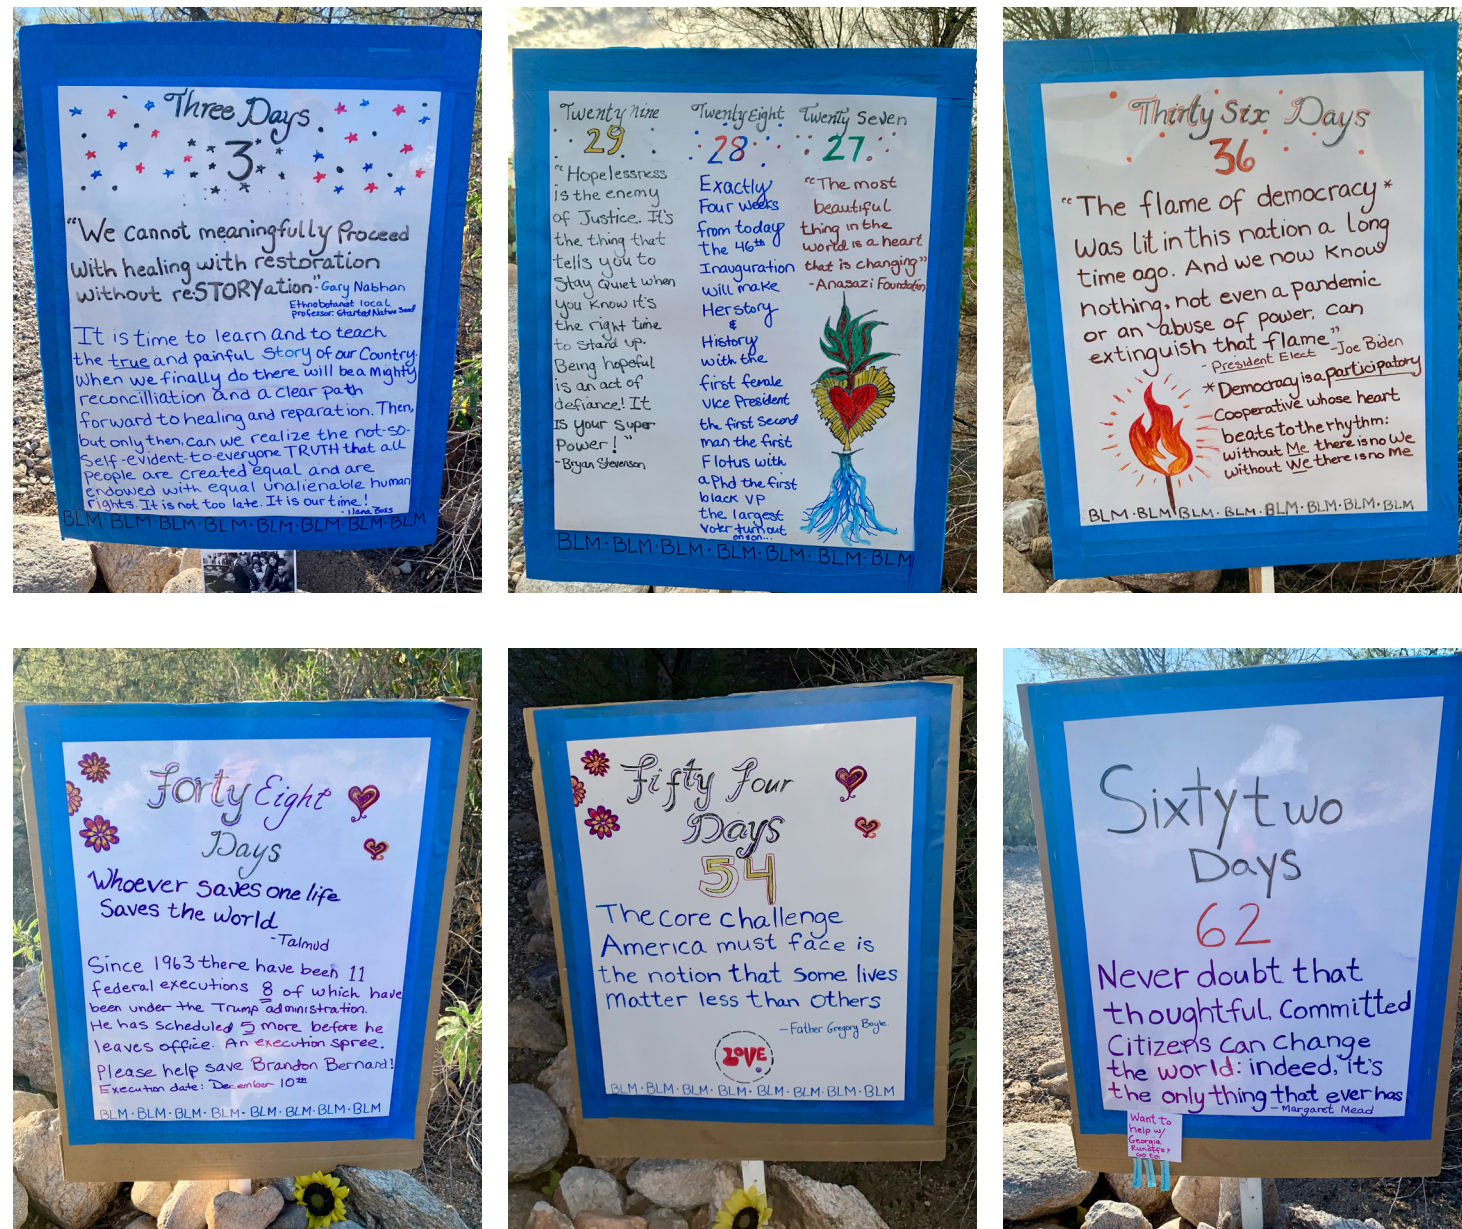 Three Days
3
"We cannot meaningfully Proceed
with healing with restoration
without reSTORYation"
-Gary Nabhan
Ethnobotanist local
professor. Started Native Seed
It is time to learn and to teach
the true and painful Story of our Country.
When we finally do there will be a Mighty
reconciliation and a clear path
forward to healing and reparation. Then,
but only then, can we realize the not-so-
Self-evident-to-everyone TRUTH that all
people are created equal and are
endowed with equal unalienable human
rights. It is not too late. It is our time!
BLM·BLM·BLM·BLM·BLM·BLM·BLM
Twenty Nine
29
"Hopelessness
is the enemy
of Justice. It's
the thing that
tells you to
Stay Quiet when
you know it's
the right time
to stand up.
Being hopeful
is an act of
defiance! It
is your super
Power!"
-Bryan Stevenson
Twenty Eight
28
Exactly
Four weeks
from today
the 46th
Inauguration
will make
Herstory
&
History
with the
first female
vice President
the first Second
man the first
Flotus with
a Phd the first
black VP
the largest
voter turnout
on on...
Twenty Seven
27
"The most
beautiful
thing in the
world is a heart
that is changing"
-Anasazi Foundation
BLM·BLM·BLM·BLM·BLM·BLM·BLM
Thirty Six Days
36
"The flame of democracy*
was lit in this nation a long
time ago. And we now know
nothing, not even a pandemic
or an abuse of power, can
extinguish that flame"
- President Elect -Joe Biden
*Democracy is a participatory
Cooperative whose heart
beats to the rhythm:
without Me there is no We
without We there is no Me
BLM·BLM·BLM·BLM·BLM·BLM·BLM·BLM
Forty Eight
Days
Whoever saves one life
Saves the world
-Talmud
Since 1963 there have been 11
federal executions 8 of which have
been under the Trump administration.
He has scheduled 5 more before he
leaves office. An execution spree.
Please help save Brandon Bernard!
Execution date: December 10th
BLM·BLM·BLM·BLM·BLM·BLM·BLM·BLM
Fifty Four
Days
54
The core challenge
America must face is
the notion that some lives
matter less than others
-Father Gregory Boyle
LOVE
BLM·BLM·BLM·BLM·BLM·BLM·BLM·BLM
Sixty two
Days
62
Never doubt that
thoughtful, Committed
Citizens can change
the world: indeed, it's
the only thing that ever has
-Margaret Mead
Want to
help w/
Georgia
Runoffs?
Go to: